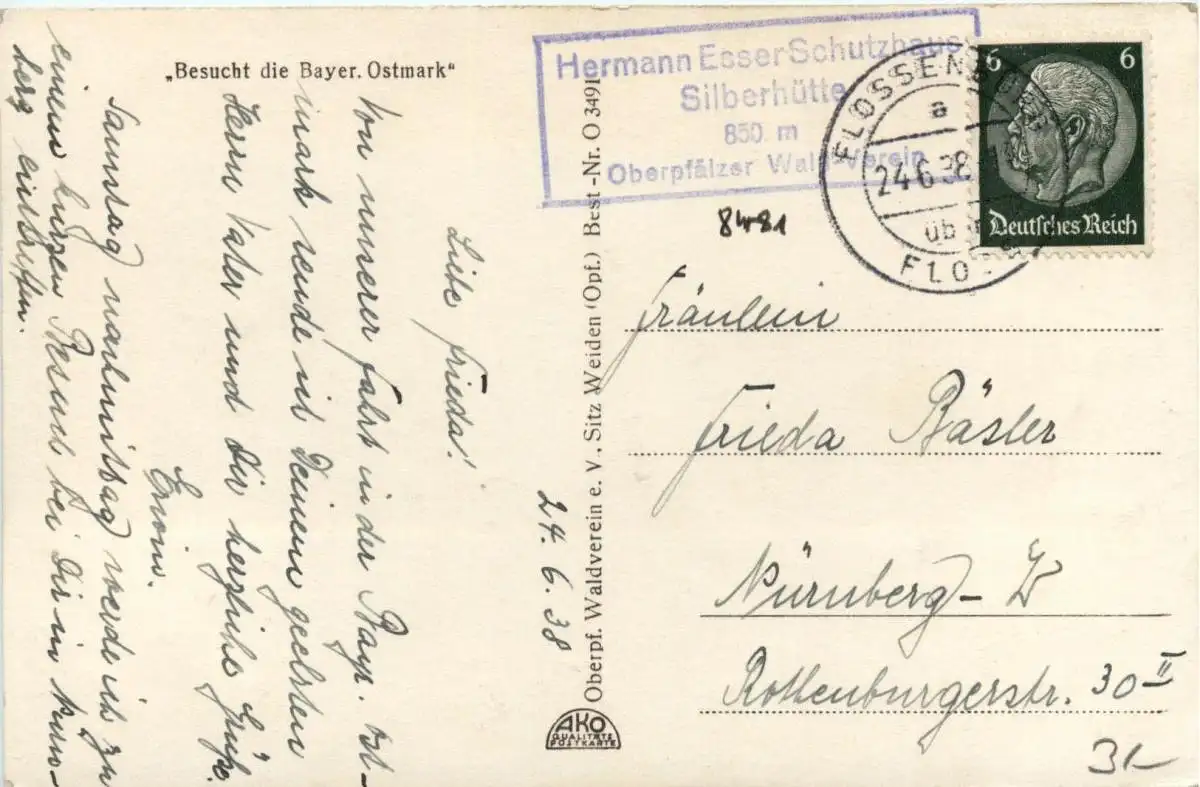 „Besucht die Bayer. Ostmark“
Hermann Esser Schutzhaus
Silberhütte
850 m
Oberpfälzer Wald-Verein
6 6
Deutsches Reich
FLOSSENBÜRG
a
24.6.38
üb
FLO
8481
24. 6. 38
Liebe Frieda!
Von unserer Fahrt in der Bayr. Ost-
mark sende ich Deinem geehrten
Herrn Vater und Dir herzliche Grüße.
Erwin.
Samstag nachmittag werde ich zu
einem kurzen Besuch bei Dir in Nürn-
berg eintreffen.
Oberpf. Waldverein e. V., Sitz Weiden (Opf.) Best-Nr. O 3491
AKO
QUALITÄTS
POSTKARTE
Fräulein
Frieda Bäsler
Nürnberg-W
Rothenburgerstr. 30 II